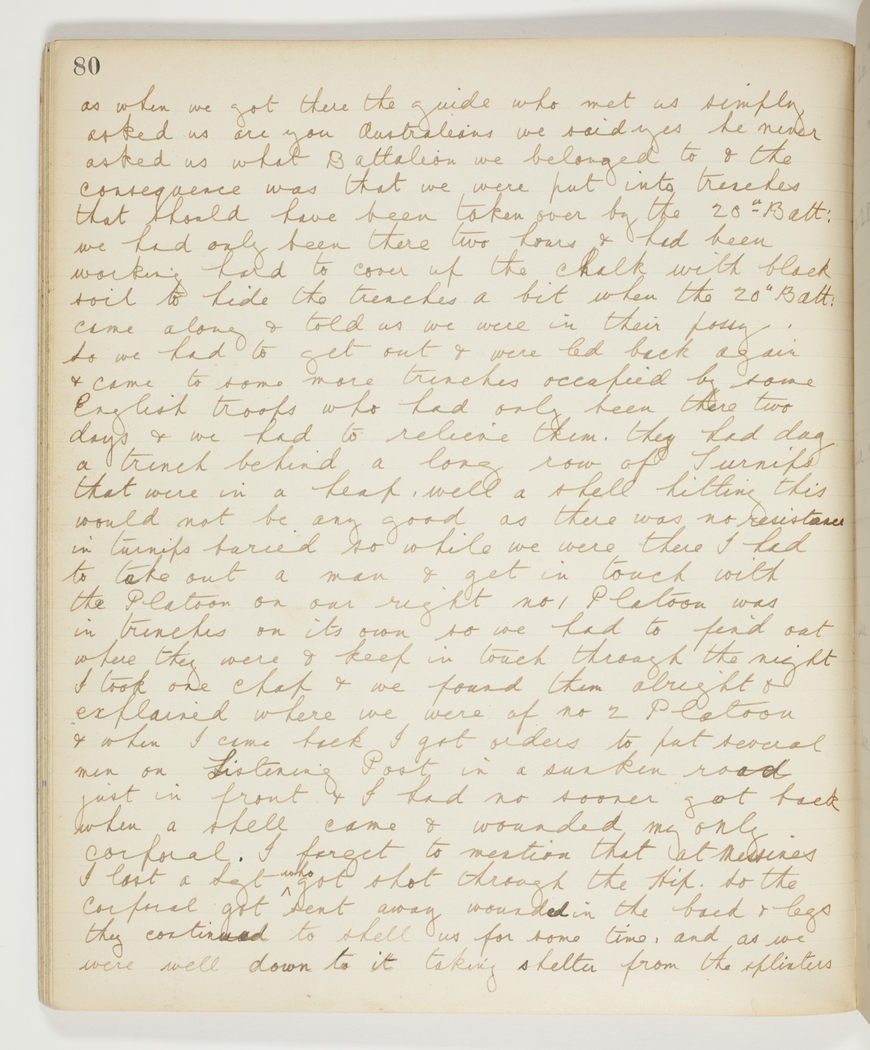 80
as when we got there the guide who met us simply
asked us are you Australians we said yes he never
asked us what Battalion we belonged to & the
consequence was that we were put into trenches
that should have been taken over by the 20th Batt:
we had only been there two hours & had been
working hard to cover up the chalk with black
soil to hide the trenches a bit when the 20th Batt:
came along & told us we were in their possy.
so we had to get out & were led back again
& came to some more trenches occupied by some
English troops who had only been there two
days & we had to relieve them. they had dug
a trench behind a long row of Turnips
that were in a heap. well a shell hitting this
would not be any good as there was no resistance
in turnips buried so while we were there I had
to take out a man & get in touch with
the Platoon on our right no 1 Platoon was
in trenches on its own so we had to find out
where they were & keep in touch through the night
I took one chap & we found them alright &
explained where we were of no 2 Platoon
& when I came back I got orders to put several
men on Listening Post in a sunken road
just in front & I had no sooner got back
when a shell came & wounded my only
corporal. I forget to mention that at Messines
I lost a Sgt who got shot through the Hip. so the
corporal got sent away wounded in the back & legs
they continued to shell us for some time. and as we
were well down to it taking shelter from the splinters